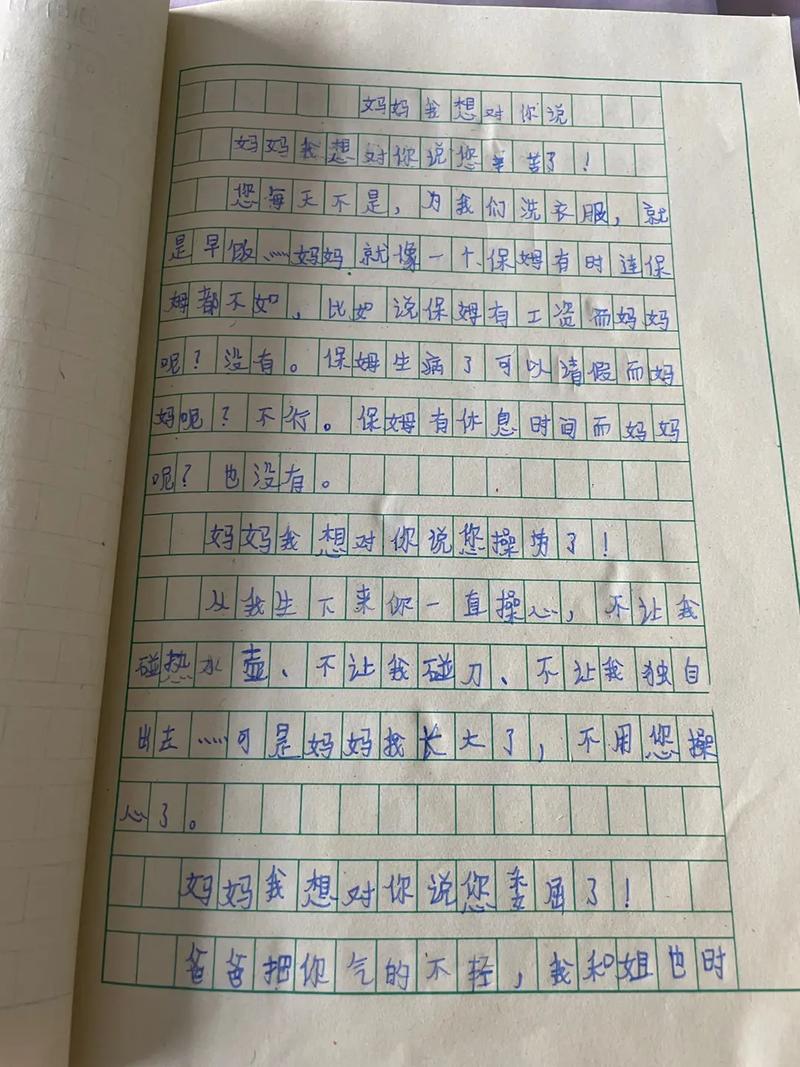 妈妈我想对你说
妈妈我想对你说您辛苦了！
您每天不是，为我们洗衣服，就
是早饭……妈妈就像一个保姆有时连保
姆都不如，比如说保姆有工资而妈妈
呢？没有。保姆生病了可以请假而妈
妈呢？不行。保姆有休息时间而妈妈
呢？也没有。
妈妈我想对你说您操劳了！
从我生下来你一直操心，不让我
碰热水壶、不让我碰刀、不让我独自
出去……可是妈妈我长大了，不用您操
心了。
妈妈我想对你说您委屈了！
爸爸把你气的不轻，我和姐也时